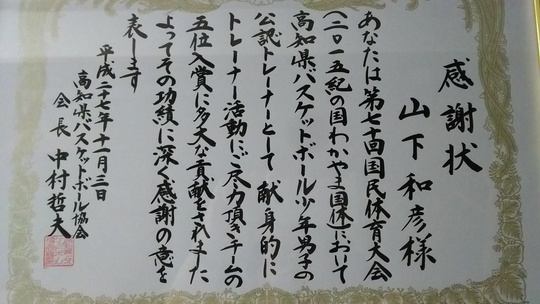 感謝状
山下和彦様
あなたは第七十回国民体育大会
(二〇一五紀の国わかやま国体)において
高知県バスケットボール少年男子の
公認トレーナーとして献身的に
トレーナー活動にご尽力頂きチームの
五位入賞に多大な貢献をされました
よってその功績に深く感謝の意を
表します
平成二十七年十一月三日
高知県バスケットボール協会
会長 中村哲夫